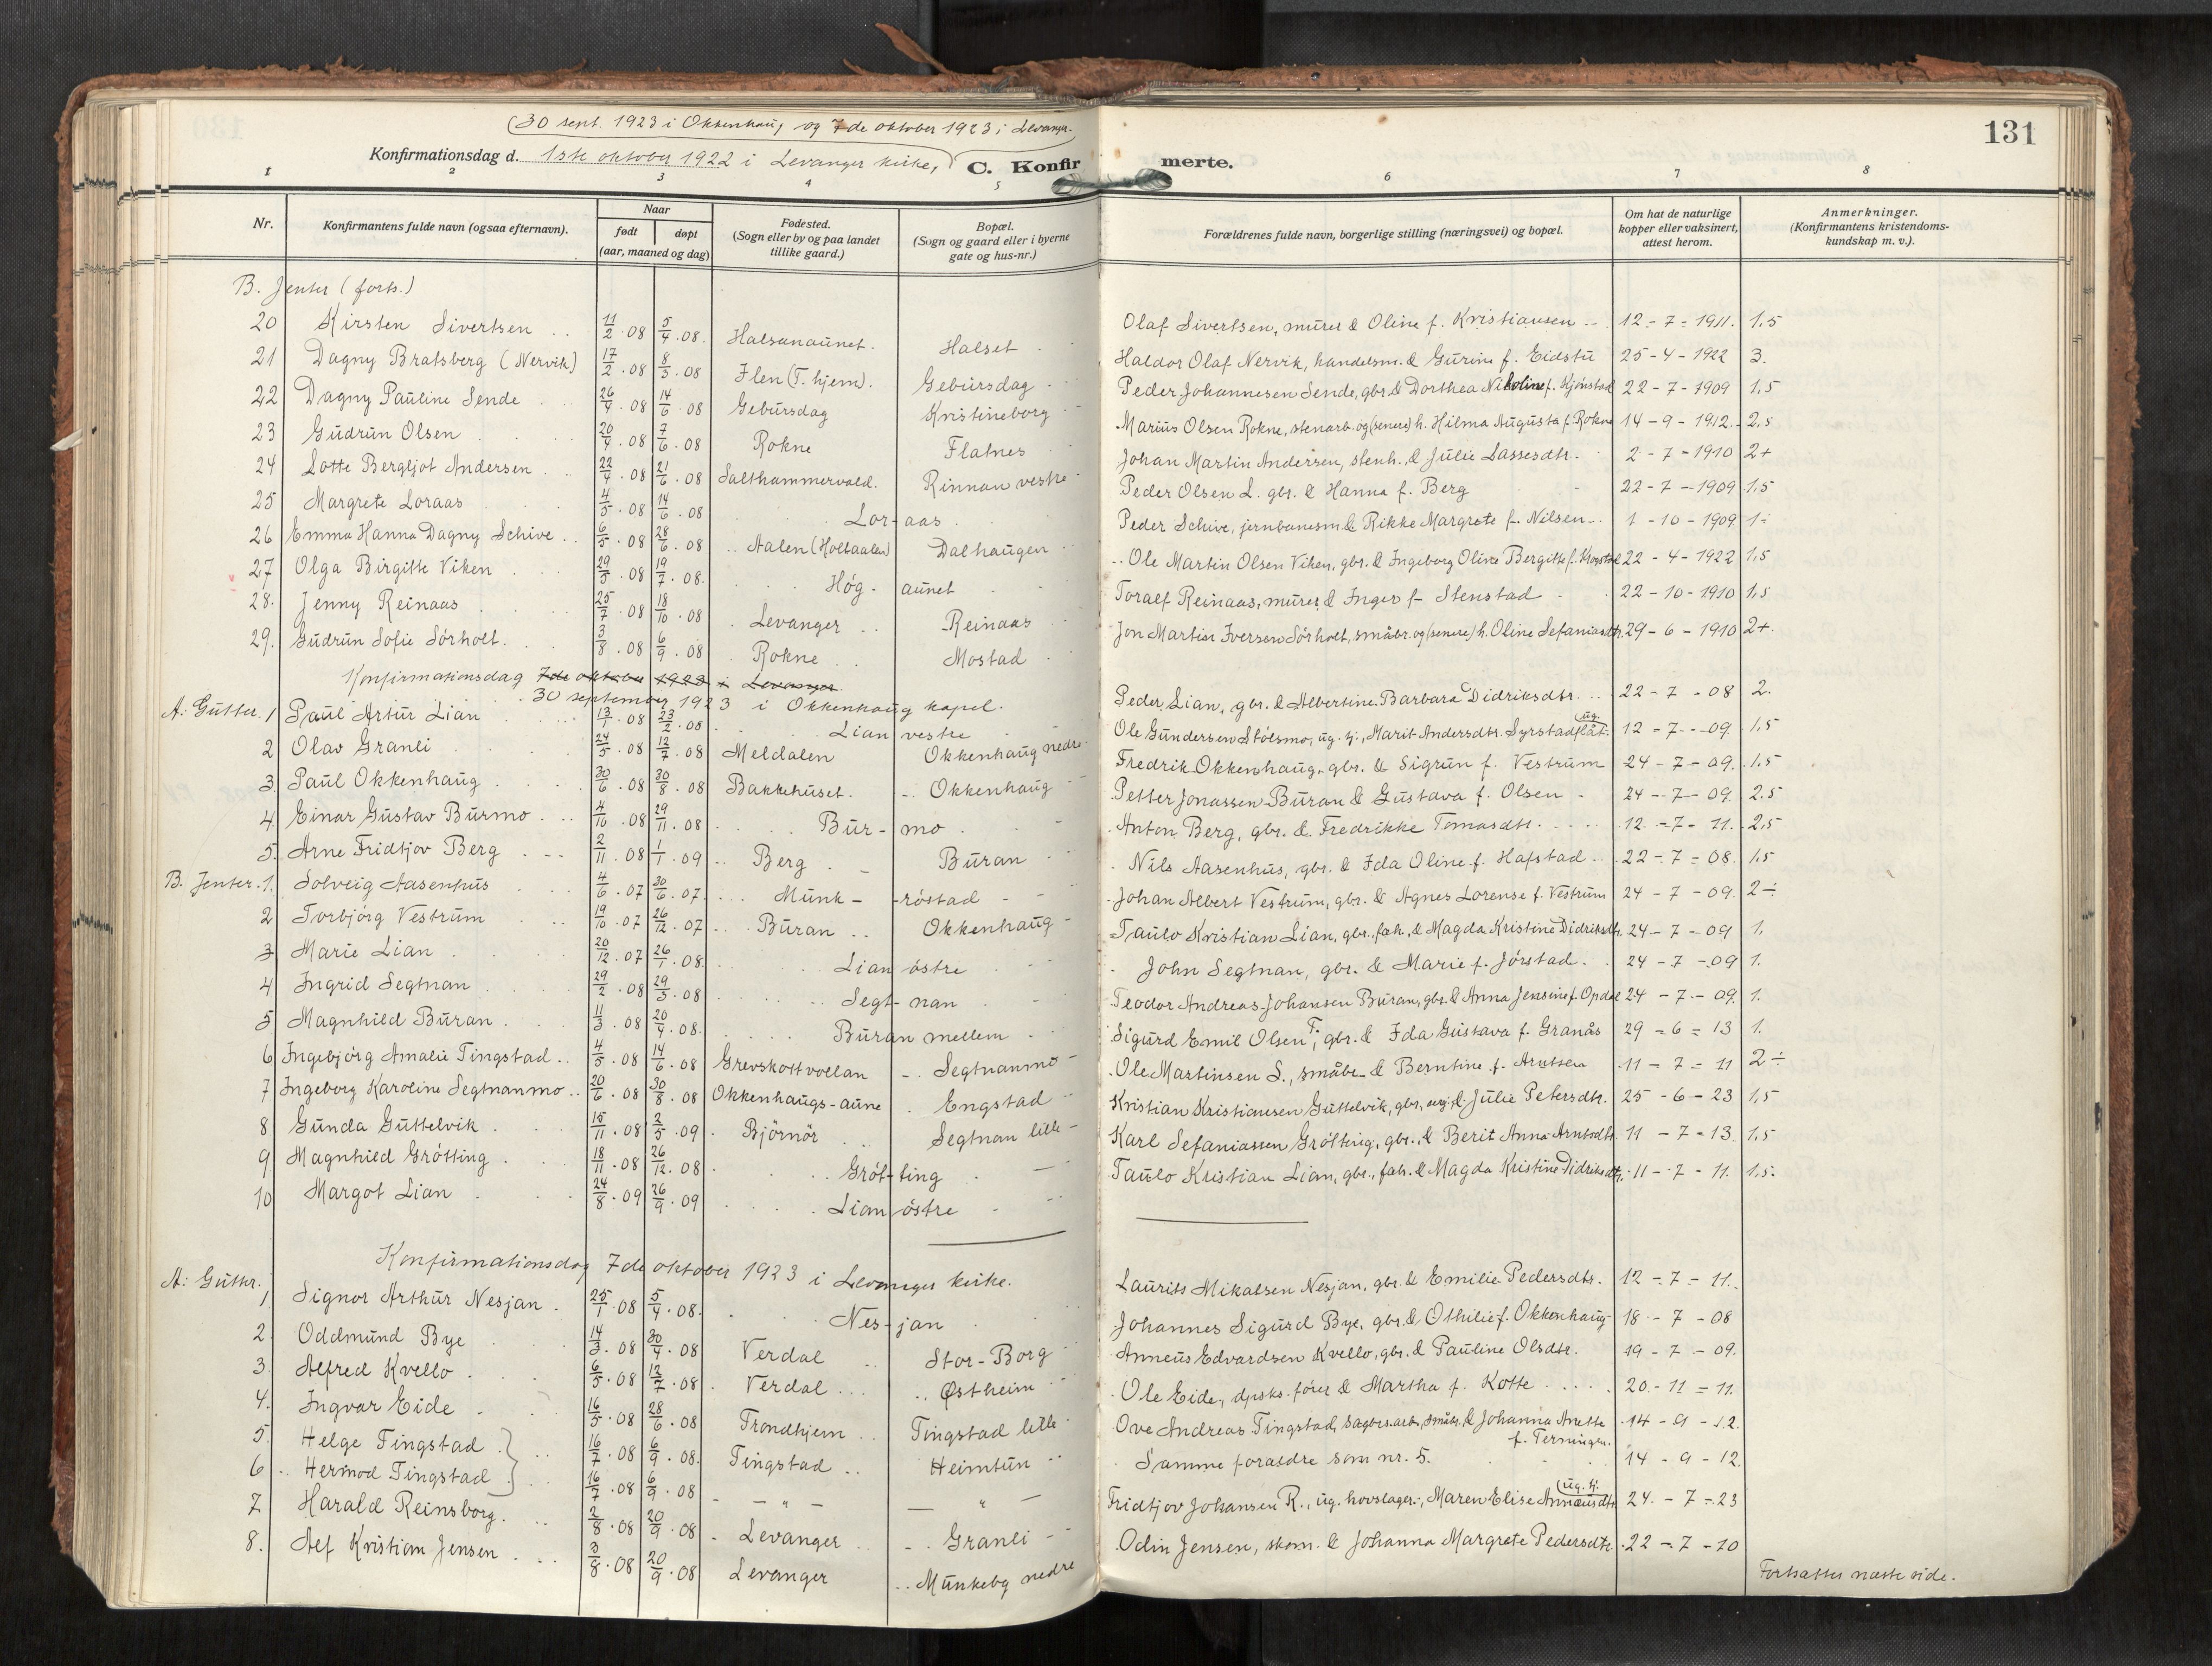 131
(30 sept. 1923 i Okkenhaug og 7de oktober 1923 i Levanger.
Konfirmationsdag d. 1ste oktober 1922 i Levanger kirke, C. Konfirmerte.
1 2 3 4 5 6 7 8
Nr. Konfirmantens fulde navn (ogsaa efternavn). Naar født døpt (aar, maaned og dag) Fødested. (Sogn eller by og paa landet tillike gaard.) Bopæl. (Sogn og gaard eller i byerne gate og hus-nr.) Forældrenes fulde navn, borgerlige stilling (næringsvei) og bopæl. Om hat de naturlige kopper eller vaksinert, attest herom. Anmerkninger. (Konfirmantens kristendomskundskap m. v.).
B. Jenter (forts.)
20 Kirsten Sivertsen 11/2.08 5/4.08. Halsanaunet. Halset Olaf Sivertsen, murer & Oline f. Kristiansen 12-7-1911. 1,5
21 Dagny Bratsberg (Nervik) 17/2.08 8/3.08 Ilen (T.hjem). Gebursdag Haldor Olaf Nervik, handelsm. & Gurine f. Eidstu 25-4-1922 3.
22 Dagny Pauline Sende 26/4.08 14/6.08 Gebursdag Kristineborg Peder Johannesen Sende, gbr. & Dorthea Nikoline f. Kjønstad 22-7-1909 1,5
23 Gudrun Olsen 20/4.08 7/6.08 Rokne Flatnes Marius Olsen Rokne, stenarb. og (senere) h. Hilma Augusta f. Rokne 14-9-1912. 2,5
24 Lotte Bergljot Andersen 22/4.08 21/6.08 Salthammervald. Rinnan vestre Johan Martin Andersen, stenh. & Julie Lassesdtr. 2-7-1910 2+
25 Margrete Loraas 4/5.08 14/6.08 Lor-aas Peder Olsen L. gbr. & Hanna f. Berg 22-7-1909 1,5
26 Emma Hanna Dagny Schive 6/5.08 28/6.08 Aalen (Holtaalen) Dalhaugen Peder Schive, jernbanesm. & Rikke Margrete f. Nilsen 1-10-1909 1÷
27 Olga Birgitte Viken 29/5.08 19/7.08. Høg-aunet Ole Martin Olsen Viken, gbr. & Ingeborg Oline Bergitte f. Krogstad 22-4-1922 1,5
28. Jenny Reinaas 25/7.08 18/10.08 Levanger Reinaas Toralf Reinaas, murer & Inger f. Stenstad 22-10-1910 1,5
29. Gudrun Sofie Sørholt. 3/8.08 6/9.08 Rokne Mostad Jon Martin Iversen Sørholt, småbr. og (senere) h. Oline Sefaniasdtr. 29-6-1910 2+.
Konfirmationsdag 7de oktober 1923 i Levanger.
30 september 1923 i Okkenhaug kapel.
A. Gutter. 1 Paul Artur Lian 13/1.08 23/2.08 Lian vestre Peder Lian, gbr. & Albertine Barbara Didriksdtr. 22-7-08 2.
2 Olav Granli 24/5.08 12/7.08 Meldalen Okkenhaug nedre Ole Gundersen Stølsmo, ug. tj., Marit Andersdtr. Syrstadflåt. (ug.) 12-7-09. 1,5
3 Paul Okkenhaug 30/6.08 30/8.08 Bakkehuset. Okkenhaug Fredrik Okkenhaug, gbr. & Sigrun f. Vestrum 24-7-09. 1,5
4. Einar Gustav Burmo 4/10.08 29/11.08 Bur-mo Petter Jonassen Buran & Gustava f. Olsen 24-7-09. 2,5
5. Arne Fridtjov Berg 2/11.08 1/1.09 Berg Buran Anton Berg, gbr. & Fredrikke Tomasdtr. 12-7-11. 2,5
B. Jenter. 1. Solveig Aasenhus 4/6.07 30/6.07. Munk-røstad Nils Aasenhus, gbr. & Ida Oline f. Hafstad 22-7-08. 1,5
2 Torbjørg Vestrum 19/10.07 26/12.07 Buran Okkenhaug Johan Albert Vestrum, gbr. & Agnes Lorense f. Vestrum 24-7-09. 2÷
3 Marie Lian 20/12.07 26/1.08. Lian østre Paulo Kristian Lian, gbr., fah. & Magda Kristine Didriksdtr. 24-7-09 1.
4 Ingrid Segtnan 29/2.08 29/3.08 Segt-nan John Segtnan, gbr. & Marie f. Jørstad 24-7-09 1.
5 Magnhild Buran 11/3.08 20/4.08. Buran mellem Teodor Andreas Johansen Buran, gbr. & Anna Jensine f. Opdal 24-7-09. 1.
6 Ingebjørg Amalie Tingstad 4/5.08 14/6.08 Grevskottvollan Segtnanmo Sigurd Emil Olsen T., gbr. & Ida Gustava f. Granås 29-6-13 1.
7 Ingeborg Karoline Segtnanmo 20/6.08 30/8.08 Okkenhaugs-aune Engstad Ole Martinsen S., småbr. & Berntine f. Arntsen 11-7-11 2÷
8 Gunda Guttelvik 15/11.08 2/5.09 Bjørnør Segtnan lille Kristian Kristiansen Guttelvik, gbr., & Julie Petersdtr. 25-6-23 1,5
9 Magnhild Grøtting 18/11.08 26/12.08 Grøt-ting Karl Sefaniassen Grøtting, gbr., & Berit Anna Arntsdtr. 11-7-13. 1,5
10 Margot Lian 24/8.09 26/9.09 Lian østre Paulo Kristian Lian, gbr., fah. & Magda Kristine Didriksdtr. 11-7-11. 1,5.
Konfirmationsdag 7de oktober 1923 i Levanger kirke.
A. Gutter. 1 Signor Arthur Nesjan 25/1.08 5/4.08. Nes-jan Laurits Mikalsen Nesjan, gbr. & Emilie Pedersdtr. 12-7-11.
2. Oddmund Bye 14/3.08 30/4.08 Verdal Stor-Borg Johannes Sigurd Bye, gbr. & Othilie f. Okkenhaug 18-7-08
3. Alfred Kvello 6/5.08 12/7.08 Verdal Østheim Anneus Edvardsen Kvello, gbr. & Pauline Olsdtr. 19-7-09.
4. Ingvar Eide 16/5.08 28/6.08 Trondhjem Tingstad lille Ole Eide, dpsks.fører & Martha f. Kotte 20-11-11.
5. Helge Tingstad 16/7.08 6/9.08. Tingstad Heimtun Ove Andreas Tingstad, sagbr.arb., småbr. & Johanna Anette f. Terningen. 14-9-12.
6 Hermod Tingstad 16/7.08 6/9.08 — " — — " — Samme foraldre som nr. 5. 14-9-12.
7. Harald Reinsborg. 2/8.08 20/9.08 Levanger Granli Fridtjov Johansen R., ug. hovslager, Maren Elise Annæusdtr. (ug. tj.) 24-7-23
8. Alf Kristian Jensen 3/8.08 20/9.08 Levanger Munkeby nedre Odin Jensen, skom. & Johanna Margrete Pedersdtr. 22-7-10
Fortsættes næste side.